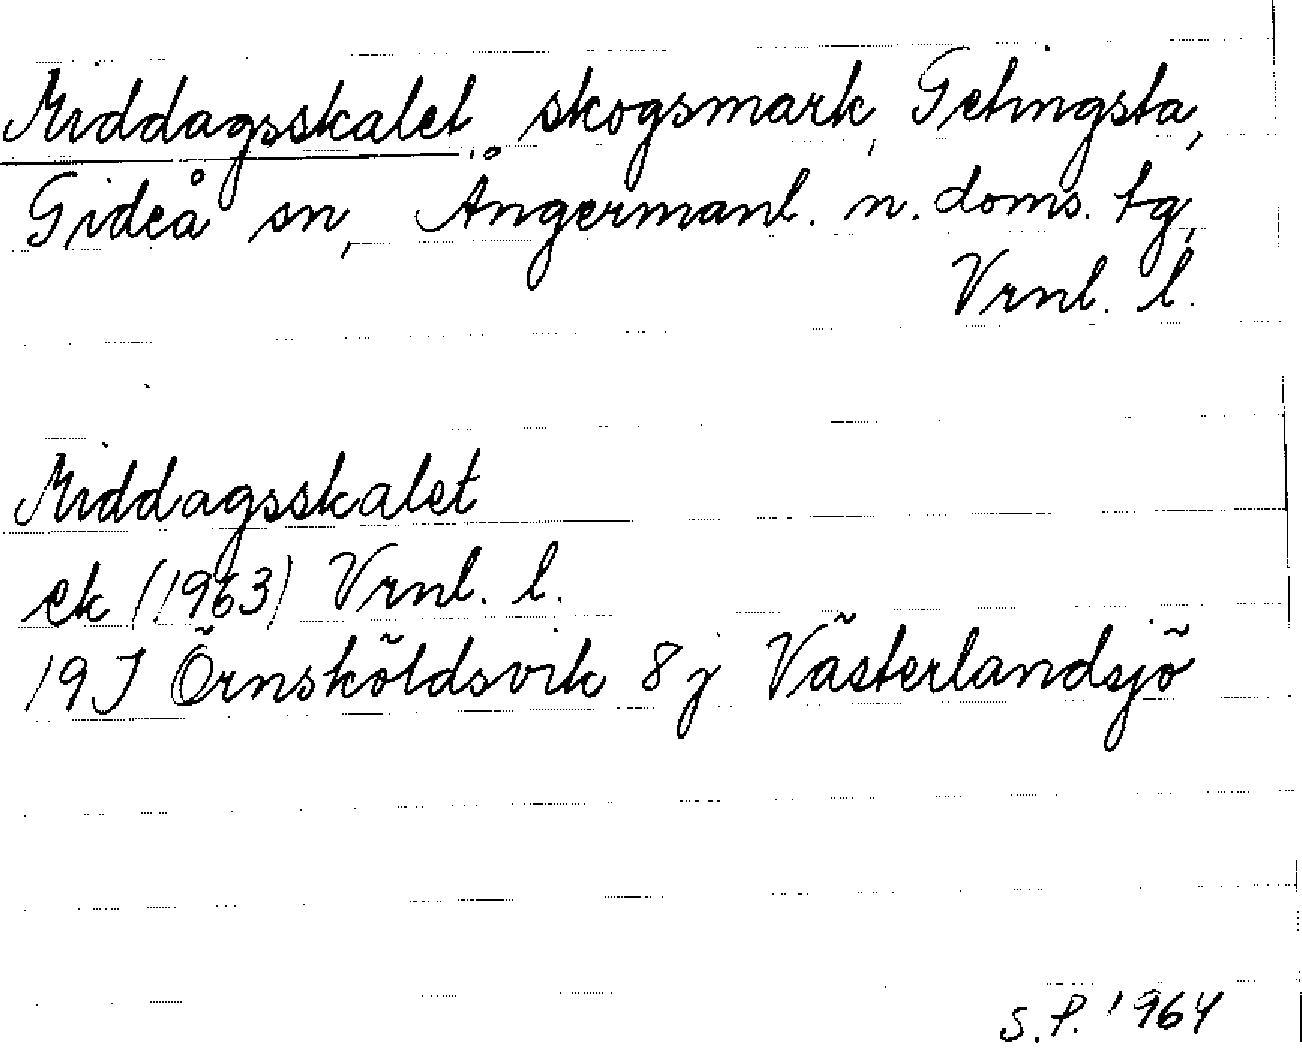 Middagsskalet, skogsmark, Getingsta,
Gideå sn, Ångermanl. n. doms. tg,
Vrnl. l.
Middagsskalet
ek (1963) Vrnl. l.
19J Örnsköldsvik 8j Västerlandsjö
S.P. 1964